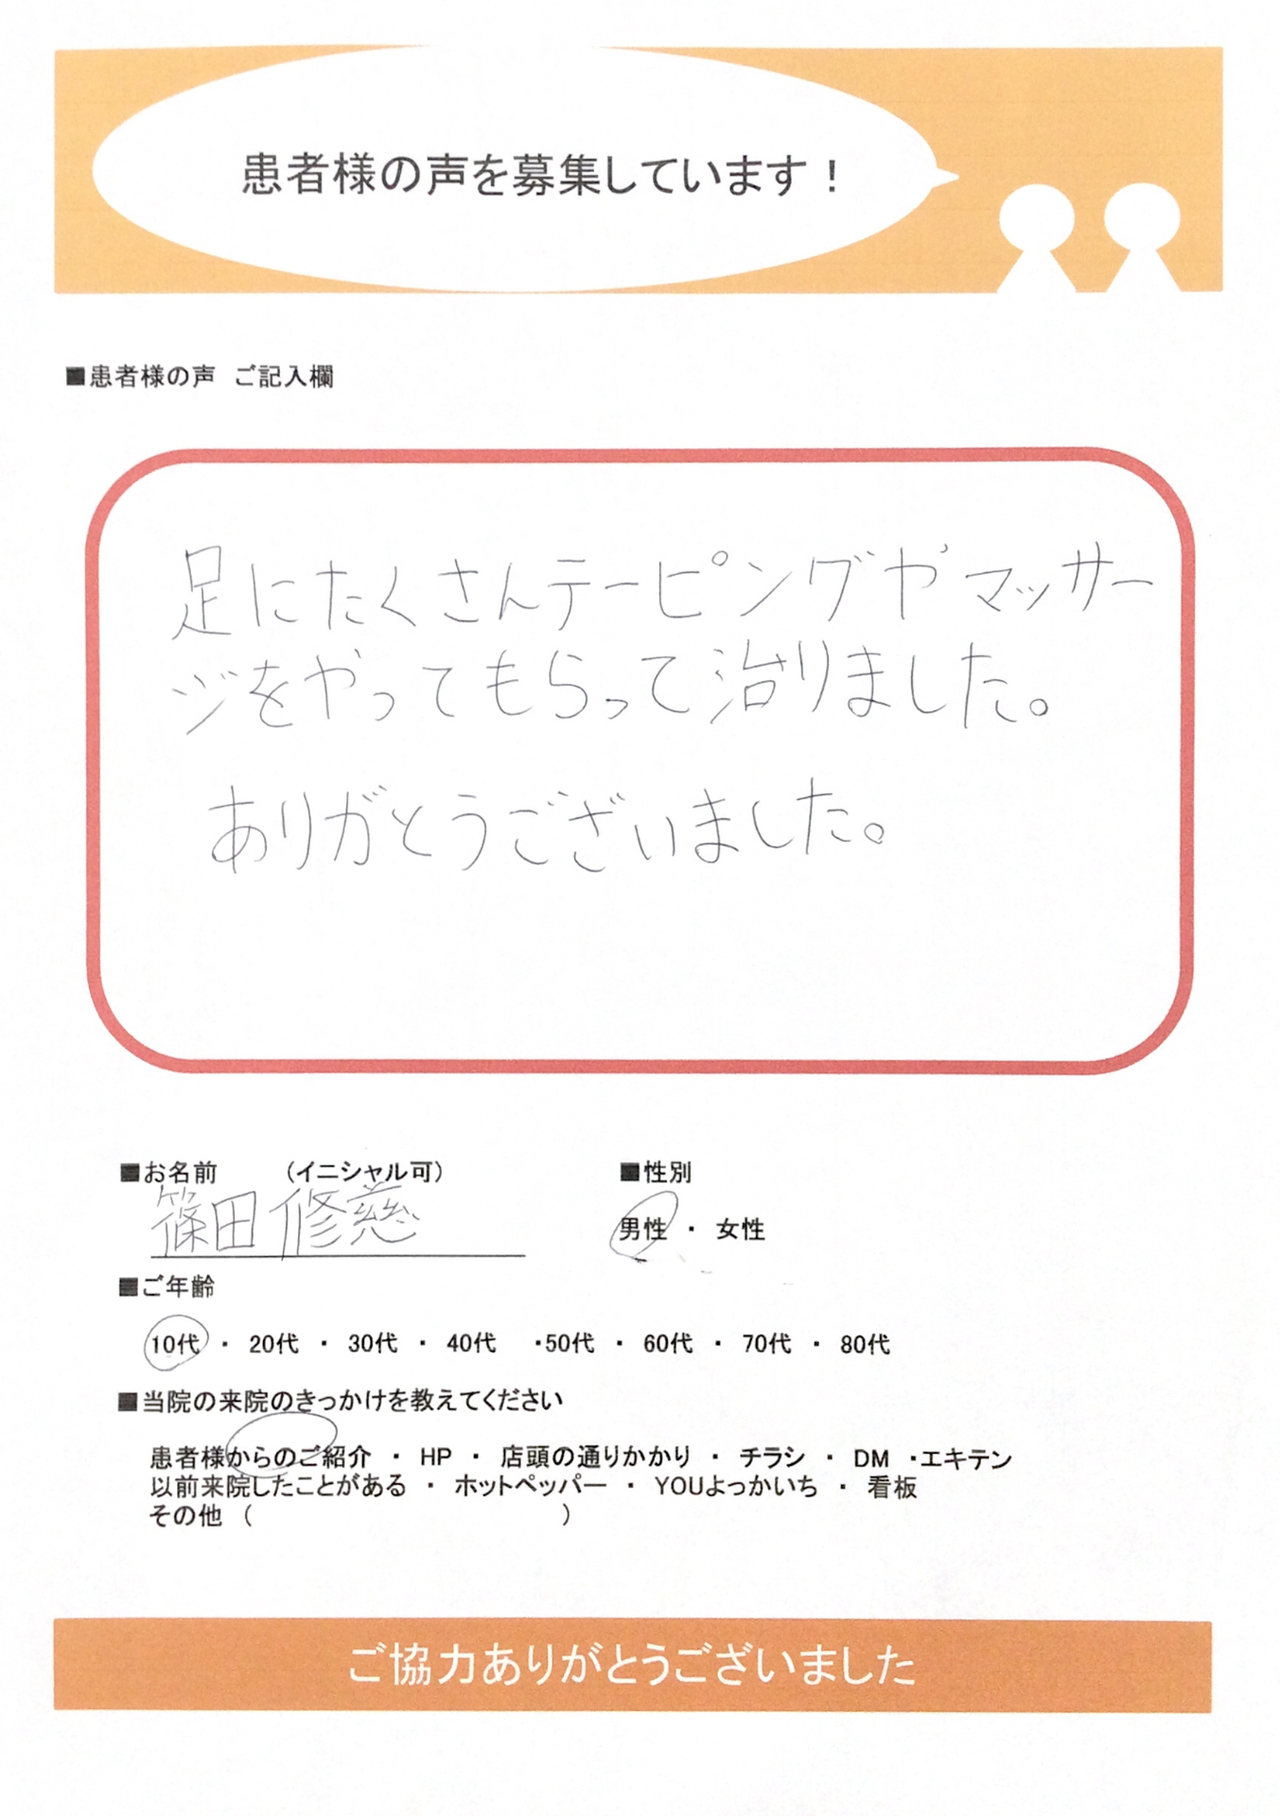 患者様の声を募集しています！
■患者様の声　ご記入欄
足にたくさんテーピングやマッサー
ジをやってもらって治りました。
ありがとうございました。
■お名前　　（イニシャル可）
篠田修慈
■性別
男性 ・ 女性
■ご年齢
10代 ・ 20代 ・ 30代 ・ 40代　・50代 ・ 60代 ・ 70代 ・ 80代
■当院の来院のきっかけを教えてください
患者様からのご紹介 ・ HP ・ 店頭の通りかかり ・ チラシ ・ DM ・エキテン
以前来院したことがある ・ ホットペッパー ・ YOUよっかいち ・ 看板
その他（　　　　　　　　　　　　）
ご協力ありがとうございました